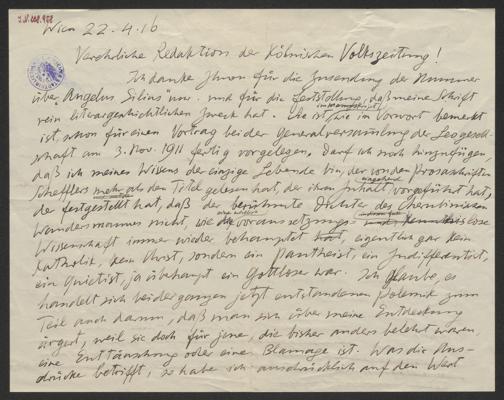 I.N. 208.978
Wien 22.4.16
Verehrliche Redaktion der Kölnischen Volkszeitung!
Ich danke Ihnen für die Zusendung der Nummer
über "Angelus Silesius" und für die Feststellung, daß meine Schrift
rein literargeschichtlichen Zweck hat. Sie ist, wie im Vorwort bemerkt
ist, schon für einen Vortrag bei der Generalversammlung der Leogesell-
schaft am 3. Nov. 1911 fertig vorgelegen. Darf ich noch hinzufügen,
daß ich meines Wissens der einzige Lebende bin, der von den Prosaschriften
Schefflers mehr als den Titel gelesen hat, der ihren Inhalt vorgeführt hat,
der festgestellt hat, daß der berühmte Dichter des Cherubinischen
Wandersmannes nicht, wie die voraussetzungslose
Wissenschaft immer wieder behauptet hat, eigentlich gar kein
Katholik, kein Christ, sondern ein Pantheist, ein Indifferentist,
ein Quietist, ja überhaupt ein Gottloser war. Ich glaube, es
handelt sich bei der ganzen jetzt entstandenen Polemik zum
Teil auch darum, daß man sich über meine Entdeckung
ärgert, weil sie doch für jene, die bisher anders belehrt waren,
eine Enttäuschung oder eine Blamage ist. Was die Aus-
drücke betrifft, so habe ich ausdrücklich auf den Wert